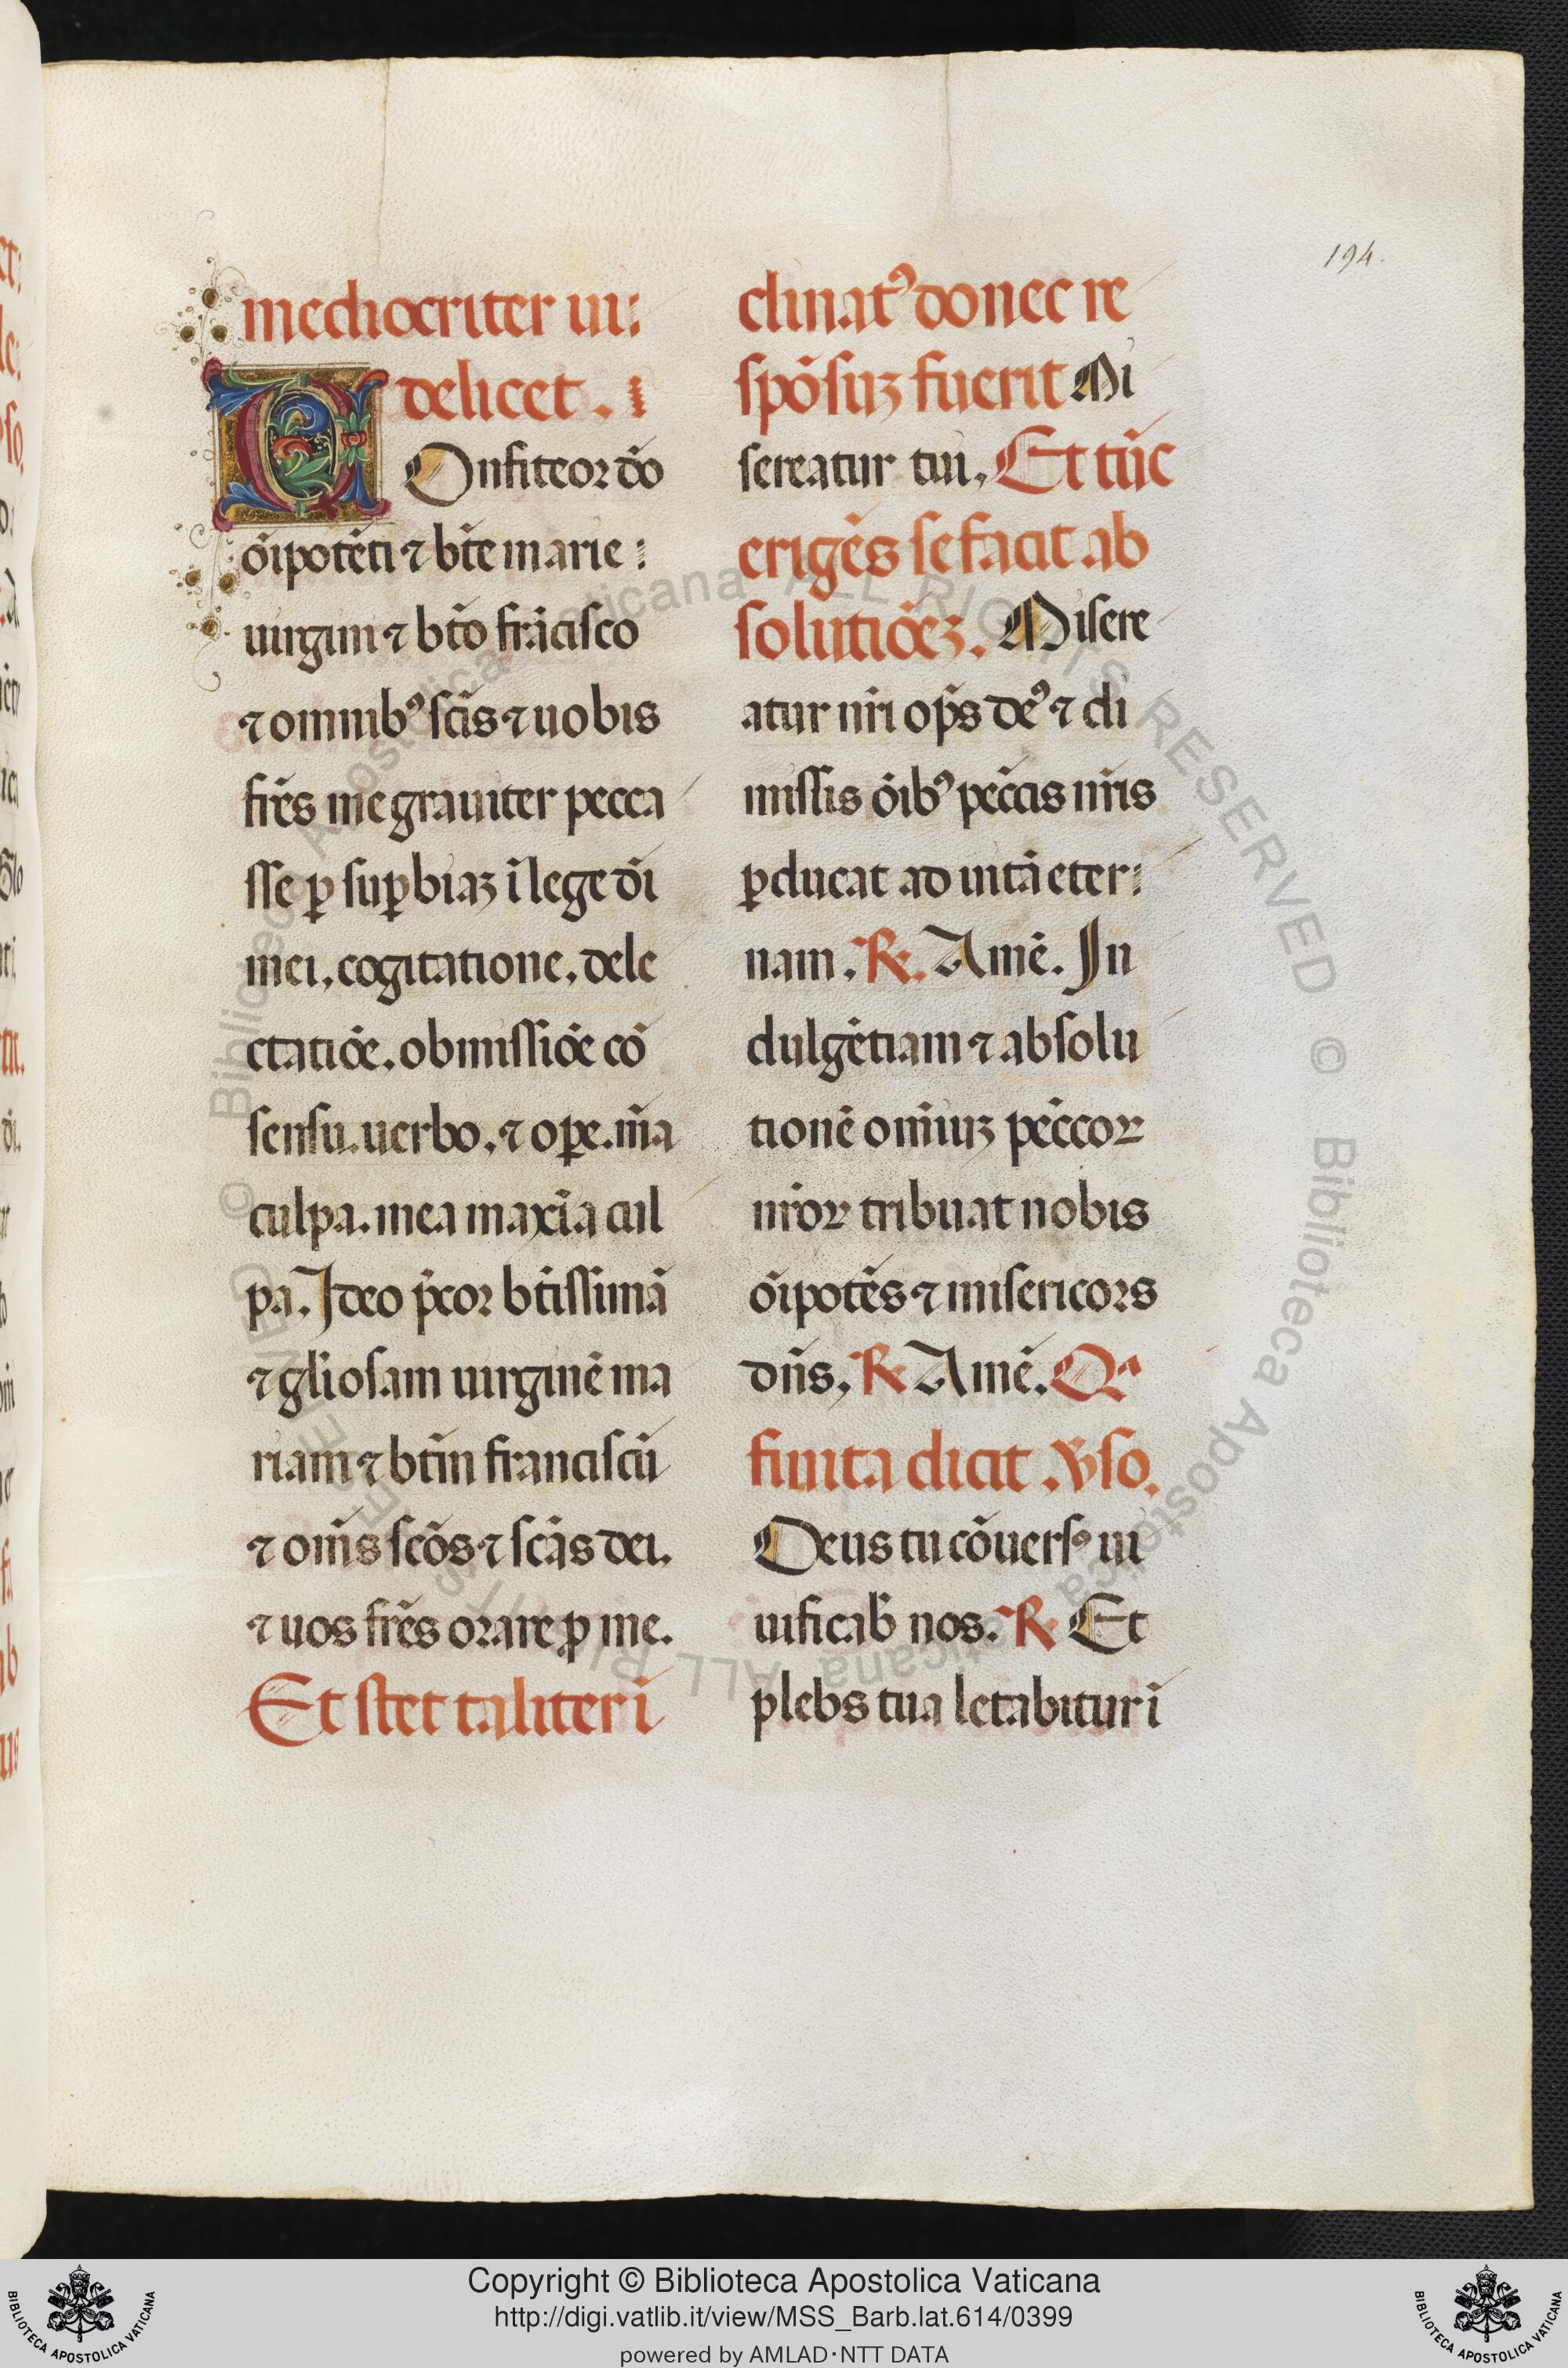 194.
mediocriter ui:
delicet .
COnfiteor dõ
õipotẽti ⁊ bt̃e marie :
uirgini ⁊ bt̃o frãcisco
⁊ omnibꝰ sc̃is ⁊ uobis
fr̃es me grauiter pecca
sse ꝑ suꝑbiaꝫ ĩ lege dĩ
mei, cogitatione, dele
ctatiõe. obmissiõe cõ
sensu. uerbo, ⁊ oꝑe. m̃a
culpa. mea maxĩa cul
pa. Ideo p̃cor bt̃issimã
⁊ gl̃iosam uirginẽ ma
riam ⁊ bt̃m franciscũ
⁊ om̃s sc̃os ⁊ sc̃as dei.
⁊ uos fr̃es orare ꝓ me.
Et stet taliter ĩ
clinatꝰ donec re
spõsuꝫ fuerit Mi
sereatur tui, Et tũc
erigẽs se facit ab
solutiõeꝫ. Misere
atur nr̃i op̃s deꝰ ⁊ di
missis õibꝰ pecc̃is nr̃is
ꝑducat ad uitã eter:
nam. ℟. Amẽ. In
dulgẽtiam ⁊ absolu
tionẽ om̃iuꝫ pecc̃oꝝ
nr̃oꝝ tribuat nobis
õipotẽs ⁊ misericors
dñs, ℟ Amẽ. Qª
finita dicit . ℣so.
Deus tu cõuersꝰ ui
uificab̃ nos. ℟ Et
plebs tua letabitur ĩ
Copyright © Biblioteca Apostolica Vaticana
http://digi.vatlib.it/view/MSS_Barb.lat.614/0399
powered by AMLAD·NTT DATA
BIBLIOTECA APOSTOLICA VATICANA
BIBLIOTECA APOSTOLICA VATICANA
© Biblioteca Apostolica Vaticana ALL RIGHTS RESERVED © Biblioteca Apostolica Vaticana ALL RIGHTS RESERVED